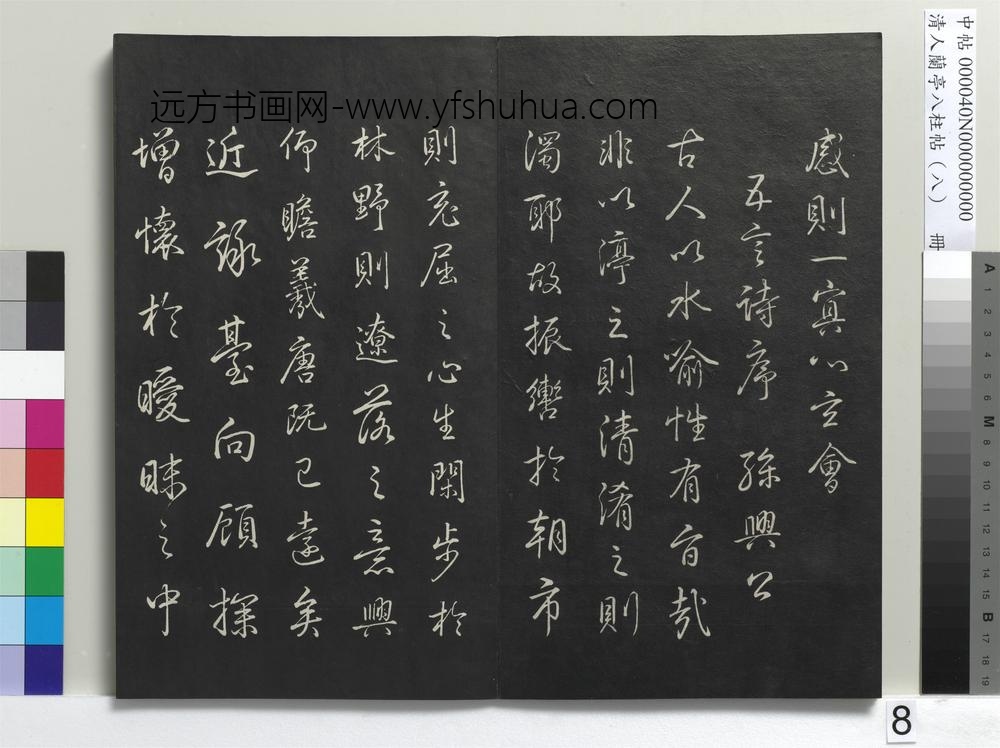 感則一冥心玄會
五言詩序 孫興公
古人以水喻性有旨哉
非以渟之則清淆之則
濁耶故振轡於朝市
則充屈之心生閑步於
林野則遼落之意興
仰瞻羲唐既已遠矣
近詠臺向顧探
增懷於曖昧之中
远方书画网-www.yfshuhua.com
中帖 000040N000000000
清人蘭亭八柱帖(八) 冊
8
A
1
2
3
4
5
6
M
8
9
10
11
12
13
14
15
B
17
18
19